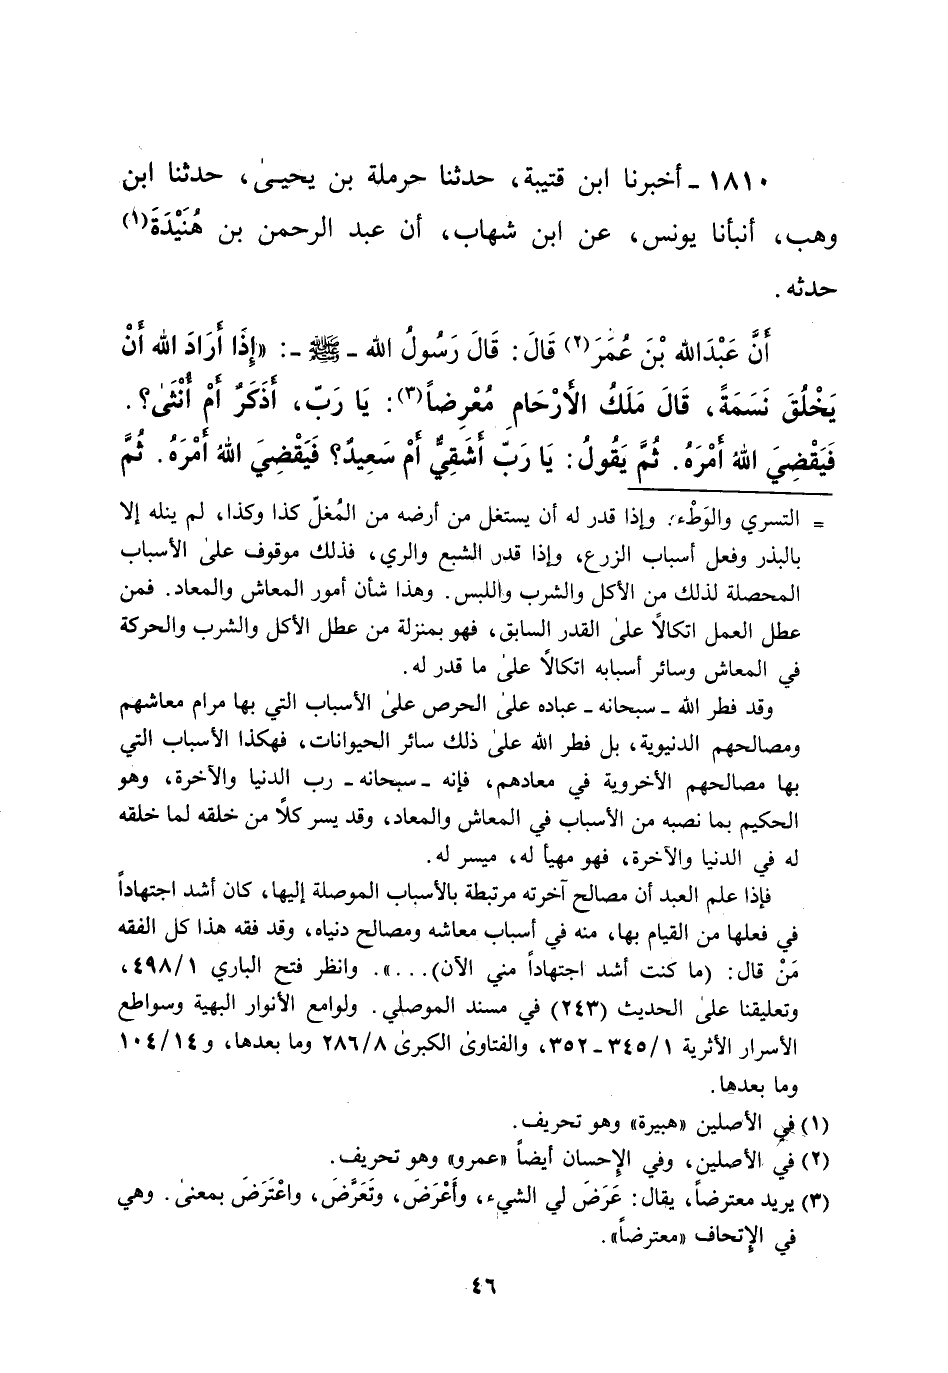 ١٨١٠ - أخبرنا ابن قتيبة، حدثنا حرملة بن يحيىٰ، حدثنا ابن
وهب، أنبأنا يونس، عن ابن شهاب، أن عبد الرحمن بن هُنَيْدَةَ(١)
حدثه.
أَنَّ عَبْدَالله بْنَ عُمَرَ(٢) قَالَ: قَالَ رَسُولُ الله - ﷺ -: «إِذَا أَرَادَ الله أَنْ
يَخْلُقَ نَسَمَةً، قَالَ مَلَكُ الأَرْحَامِ مُعْرِضاً(٣): يَا رَبّ، أَذَكَرٌ أَمْ أُنْثَىٰ؟.
فَيَقْضِيَ اللهُ أَمْرَهُ. ثُمَّ يَقُولُ: يَا رَبّ أَشَقِيٌّ أَمْ سَعِيدٌ؟ فَيَقْضِيَ اللهُ أَمْرَهُ. ثُمَّ
= التسري والوَطْء؛ وإذا قدر له أن يستغل من أرضه من المُغلّ كذا وكذا، لم ينله إلا
بالبذر وفعل أسباب الزرع، وإذا قدر الشبع والري، فذلك موقوف علىٰ الأسباب
المحصلة لذلك من الأكل والشرب واللبس. وهذا شأن أمور المعاش والمعاد. فمن
عطل العمل اتكالًا علىٰ القدر السابق، فهو بمنزلة من عطل الأكل والشرب والحركة
في المعاش وسائر أسبابه اتكالًا علىٰ ما قدر له.
وقد فطر الله - سبحانه - عباده علىٰ الحرص علىٰ الأسباب التي بها مرام معاشهم
ومصالحهم الدنيوية، بل فطر الله علىٰ ذلك سائر الحيوانات، فهكذا الأسباب التي
بها مصالحهم الأخروية في معادهم، فإنه - سبحانه - رب الدنيا والآخرة، وهو
الحكيم بما نصبه من الأسباب في المعاش والمعاد، وقد يسر كلًا من خلقه لما خلقه
له في الدنيا والآخرة، فهو مهيأ له، ميسر له.
فإذا علم العبد أن مصالح آخرته مرتبطة بالأسباب الموصلة إليها، كان أشد اجتهاداً
في فعلها من القيام بها، منه في أسباب معاشه ومصالح دنياه، وقد فقه هذا كل الفقه
مَنْ قال: (ما كنت أشد اجتهاداً مني الآن)...». وانظر فتح الباري ٤٩٨/١،
وتعليقنا علىٰ الحديث (٢٤٣) في مسند الموصلي. ولوامع الأنوار البهية وسواطع
الأسرار الأثرية ٣٤٥/١ - ٣٥٢، والفتاوىٰ الكبرىٰ ٢٨٦/٨ وما بعدها، و ١٠٤/١٤
وما بعدها.
(١) في الأصلين «هبيرة» وهو تحريف.
(٢) في الأصلين، وفي الإحسان أيضاً «عمرو» وهو تحريف.
(٣) يريد معترضاً، يقال: عَرَضَ لي الشيء، وأَعْرَضَ، وتَعَرَّضَ، واعْتَرَضَ بمعنىٰ. وهي
في الإتحاف «معترضاً».
٤٦